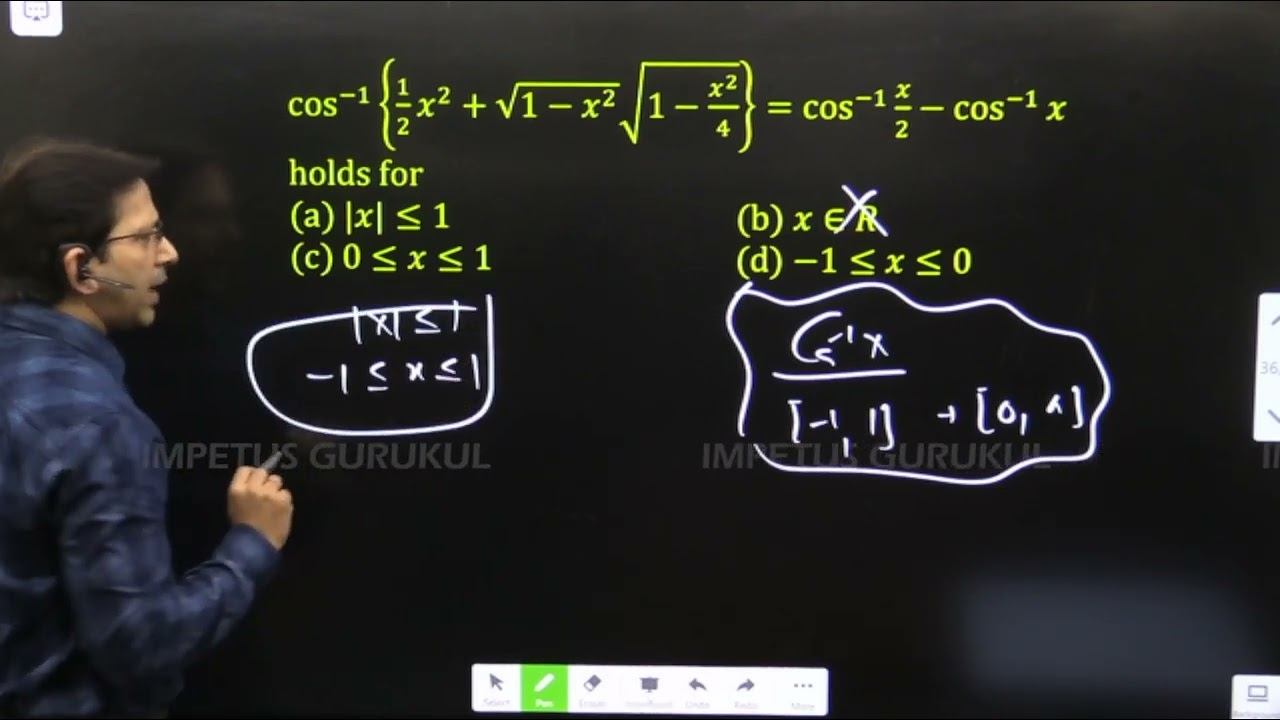 cos⁻¹ {1/2 x² + √(1 − x²) √(1 − x²/4)} = cos⁻¹ x/2 − cos⁻¹ x
holds for
(a) |x| ≤ 1 (b) x ∈ R
(c) 0 ≤ x ≤ 1 (d) −1 ≤ x ≤ 0
|x| ≤ 1
−1 ≤ x ≤ 1
Cos⁻¹ x
[−1, 1] → [0, π]
IMPETUS GURUKUL IMPETUS GURUKUL
36,
Select Pen Eraser Undo Redo More
Background